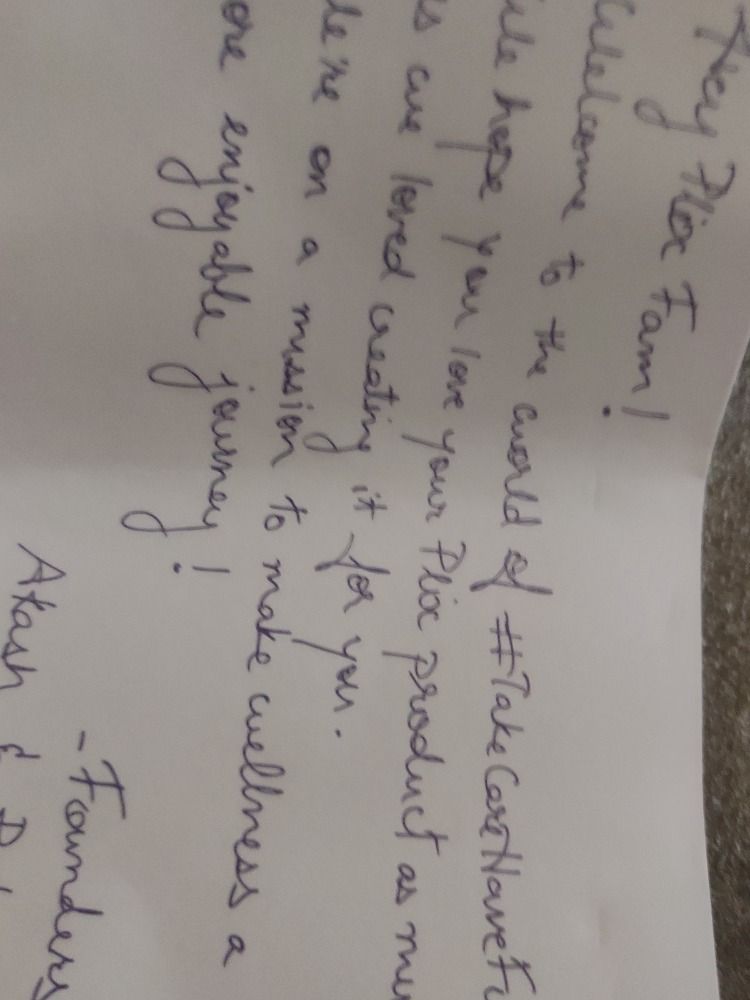 Hey Plix Fam!
Welcome to the world of #TakeCareHaveFu
we hope you love your Plix product as mu
as we loved creating it for you.
We're on a mission to make wellness a
ore enjoyable journey!
- Founders
Akash &